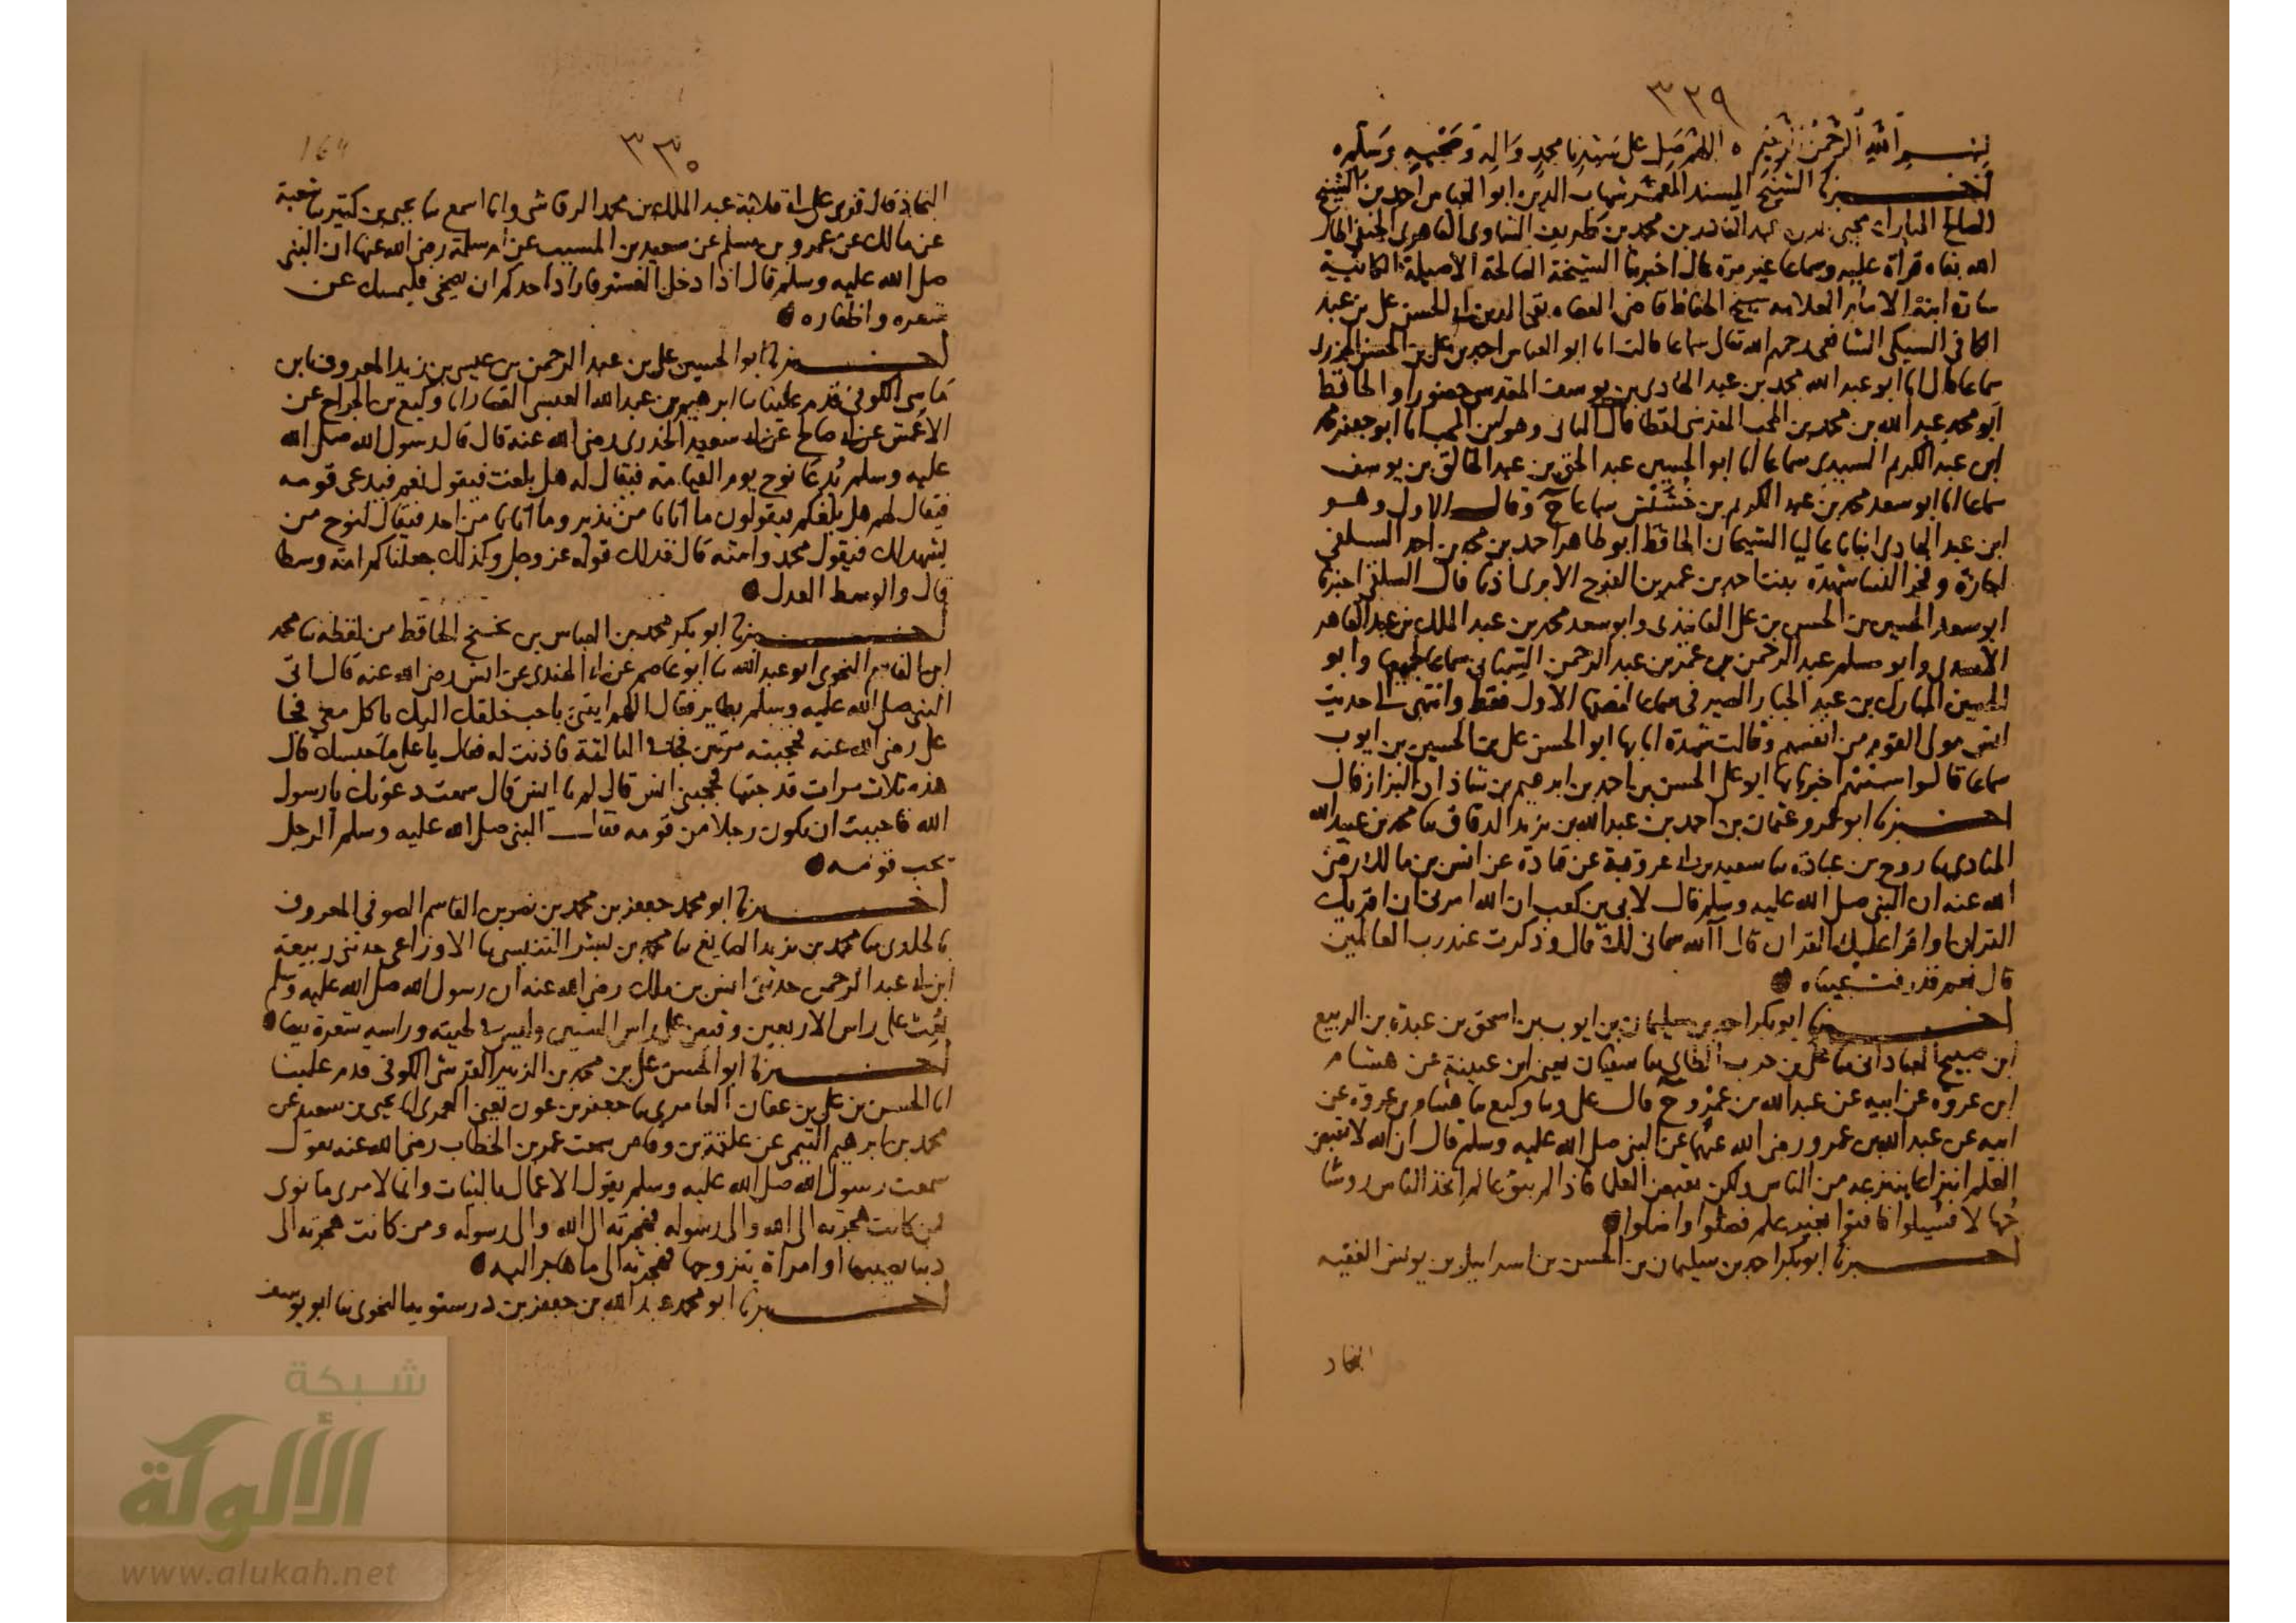 ٣٢٩
بسم الله الرحمن الرحيم ٥ اللهم صل على سيدنا محمد واله وصحبه وسلم ٥
اخبرنا الشيخ المسند المعمر شهاب الدين ابو العباس احمد بن الشيخ
الصالح المبارك محيى الدين عبد القادر بن محمد بن طريف الشاوى القاهرى الحنفى اطال
الله بقاه قراة عليه وسماعا غير مرة قال اخبرتنا الشيخة الصالحة الاصيلة الكاتبة
سارة ابنة الامام العلامه شيخ الحفاظ قاضى القضاه تقى الدين ابى الحسن على بن عبد
الكافى السبكى الشافعى رحمهم الله تعالى سماعا قالت انا ابو العباس احمد بن على بن الحسن الجزرى
سماعا قال انا ابو عبد الله محمد بن عبد الهادى بن يوسف المقدسى حضورا والحافظ
ابو محمد عبد الله بن محمد بن المحب المقدسى لفظا قال الثانى وهو ابن المحب انا ابو جعفر محمد
ابن عبد الكريم السيدى سماعا انا ابو الحسين عبد الحق بن عبد الخالق بن يوسف
سماعا انا ابو سعد محمد بن عبد الكريم بن خشيش سماعا ح وقال الاول وهو
ابن عبد الهادى انبانا عاليا الشيخان الحافظ ابو طاهر احمد بن محمد بن احمد السلفى
اجازة وفخر النسا شهدة بنت احمد بن عمر بن الفرج الابرى اذنا قال السلفى اخبرنا
ابو سعد الحسين بن الحسين بن على الفانيذى وابو سعد محمد بن عبد الملك بن عبد القاهر
الاسدى وابو مسلم عبد الرحمن بن عمر بن عبد الرحمن السمنانى سماعا لجميعها وابو
الحسين المبارك بن عبد الجبار الصيرفى سماعا لنصفها الاول فقط وانتهى الى حديث
انس مولى القوم من انفسهم وقالت شهدة انا بها ابو الحسن على بن الحسين بن ايوب
سماعا قالوا ستتهم اخبرنا بها ابو على الحسن بن احمد بن ابرهيم بن شاذان البزاز قال
اخبرنا ابو عمرو عثمان بن احمد بن عبد الله بن يزيد الدقاق نا محمد بن عبيد الله
المنادى نا روح بن عبادة نا سعيد بن ابى عروبة عن قتادة عن انس بن مالك رضى
الله عنه ان النبى صلى الله عليه وسلم قال لابى بن كعب ان الله امرنى ان اقريك
القران او اقرا عليك القران قال آلله سمانى لك قال وذكرت عند رب العالمين
قال نعم فذرفت عيناه
اخبرنا ابو بكر احمد بن سليمان بن ايوب بن اسحق بن عبدة بن الربيع
ابن صبيح العبادانى نا على بن حرب الطائى نا سفيان يعنى ابن عيينة عن هشام
ابن عروه عن ابيه عن عبد الله بن عمرو ح قال على ونا وكيع نا هشام بن عروة عن
ابيه عن عبد الله بن عمرو رضى الله عنهما عن النبى صلى الله عليه وسلم قال ان الله لا يقبض
العلم انتزاعا ينتزعه من الناس ولكن يقبض العلما فاذا لم يبق عالم اتخذ الناس روسا
جهالا فسئلوا فافتوا بغير علم فضلوا واضلوا
اخبرنا ابو بكر احمد بن سليمان بن الحسن بن اسرائيل بن يونس الفقيه
النجاد
٣٣٠
164
النجاد قال قرى على ابى قلابة عبد الملك بن محمد الرقاشى وانا اسمع نا يحيى بن كثير نا شعبة
عن مالك عن عمرو بن مسلم عن سعيد بن المسيب عن ام سلمة رضى الله عنها ان النبى
صلى الله عليه وسلم قال اذا دخل العشر فاراد احدكم ان يضحى فليمسك عن
شعره واظفاره
اخبرنا ابو الحسين على بن عبد الرحمن بن عيسى بن زيد المعروف بابن
ماتى الكوفى قدم علينا نا ابرهيم بن عبد الله العبسى القصار انا وكيع بن الجراح عن
الاعمش عن ابى صالح عن ابى سعيد الخدرى رضى الله عنه قال قال رسول الله صلى الله
عليه وسلم يدعا نوح يوم القيامة فيقال له هل بلغت فيقول نعم فيدعى قومه
فيقال لهم هل بلغكم فيقولون ما اتانا من نذير وما اتانا من احد فيقال لنوح من
يشهد لك فيقول محمد وامته قال فذلك قوله عز وجل وكذلك جعلناكم امة وسطا
قال والوسط العدل
اخبرنا ابو بكر محمد بن العباس بن نجيح الحافظ من لفظه نا محمد
ابن القاسم النحوى ابو عبد الله نا ابو عاصم عن ابى الهندى عن انس رضى الله عنه قال اتى
النبى صلى الله عليه وسلم بطاير فقال اللهم ايتنى باحب خلقك اليك ياكل معى فجا
على رضى الله عنه فحجبته مرتين فجا فى الثالثة فاذنت له فقال يا على ما حبسك قال
هذه ثلاث مرات قد جئتها فحجبنى انس قال لم يا انس قال سمعت دعوتك يا رسول
الله فاحببت ان يكون رجلا من قومه فقال النبى صلى الله عليه وسلم الرجل
يحب قومه
اخبرنا ابو محمد جعفر بن محمد بن نصر بن القاسم الصوفى المعروف
بالخلدى نا محمد بن يزيد الصايغ نا محمد بن بشر التنيسى نا الاوزاعى حدثنى ربيعة
ابن ابى عبد الرحمن حدثنى انس بن ملك رضى الله عنه ان رسول الله صلى الله عليه وسلم
بعث على راس الاربعين وقبض على راس الستين وليس فى لحيته وراسه شعرة بيضا
اخبرنا ابو الحسن على بن محمد بن الزبير القرشى الكوفى قدم علينا
انا الحسن بن على بن عفان العامرى نا جعفر بن عون يعنى العمرى انا يحيى بن سعيد عن
محمد بن ابرهيم التيمى عن علقمة بن وقاص سمعت عمر بن الخطاب رضى الله عنه يقول
سمعت رسول الله صلى الله عليه وسلم يقول الاعمال بالنيات وانما لامرى ما نوى
فمن كانت هجرته الى الله والى رسوله فهجرته الى الله والى رسوله ومن كانت هجرته الى
دنيا يصيبها او امراة يتزوجها فهجرته الى ما هاجر اليه
اخبرنا ابو محمد عبد الله بن جعفر بن درستويه النحوى نا ابو يوسف
شبكة
الألوكة
www.alukah.net